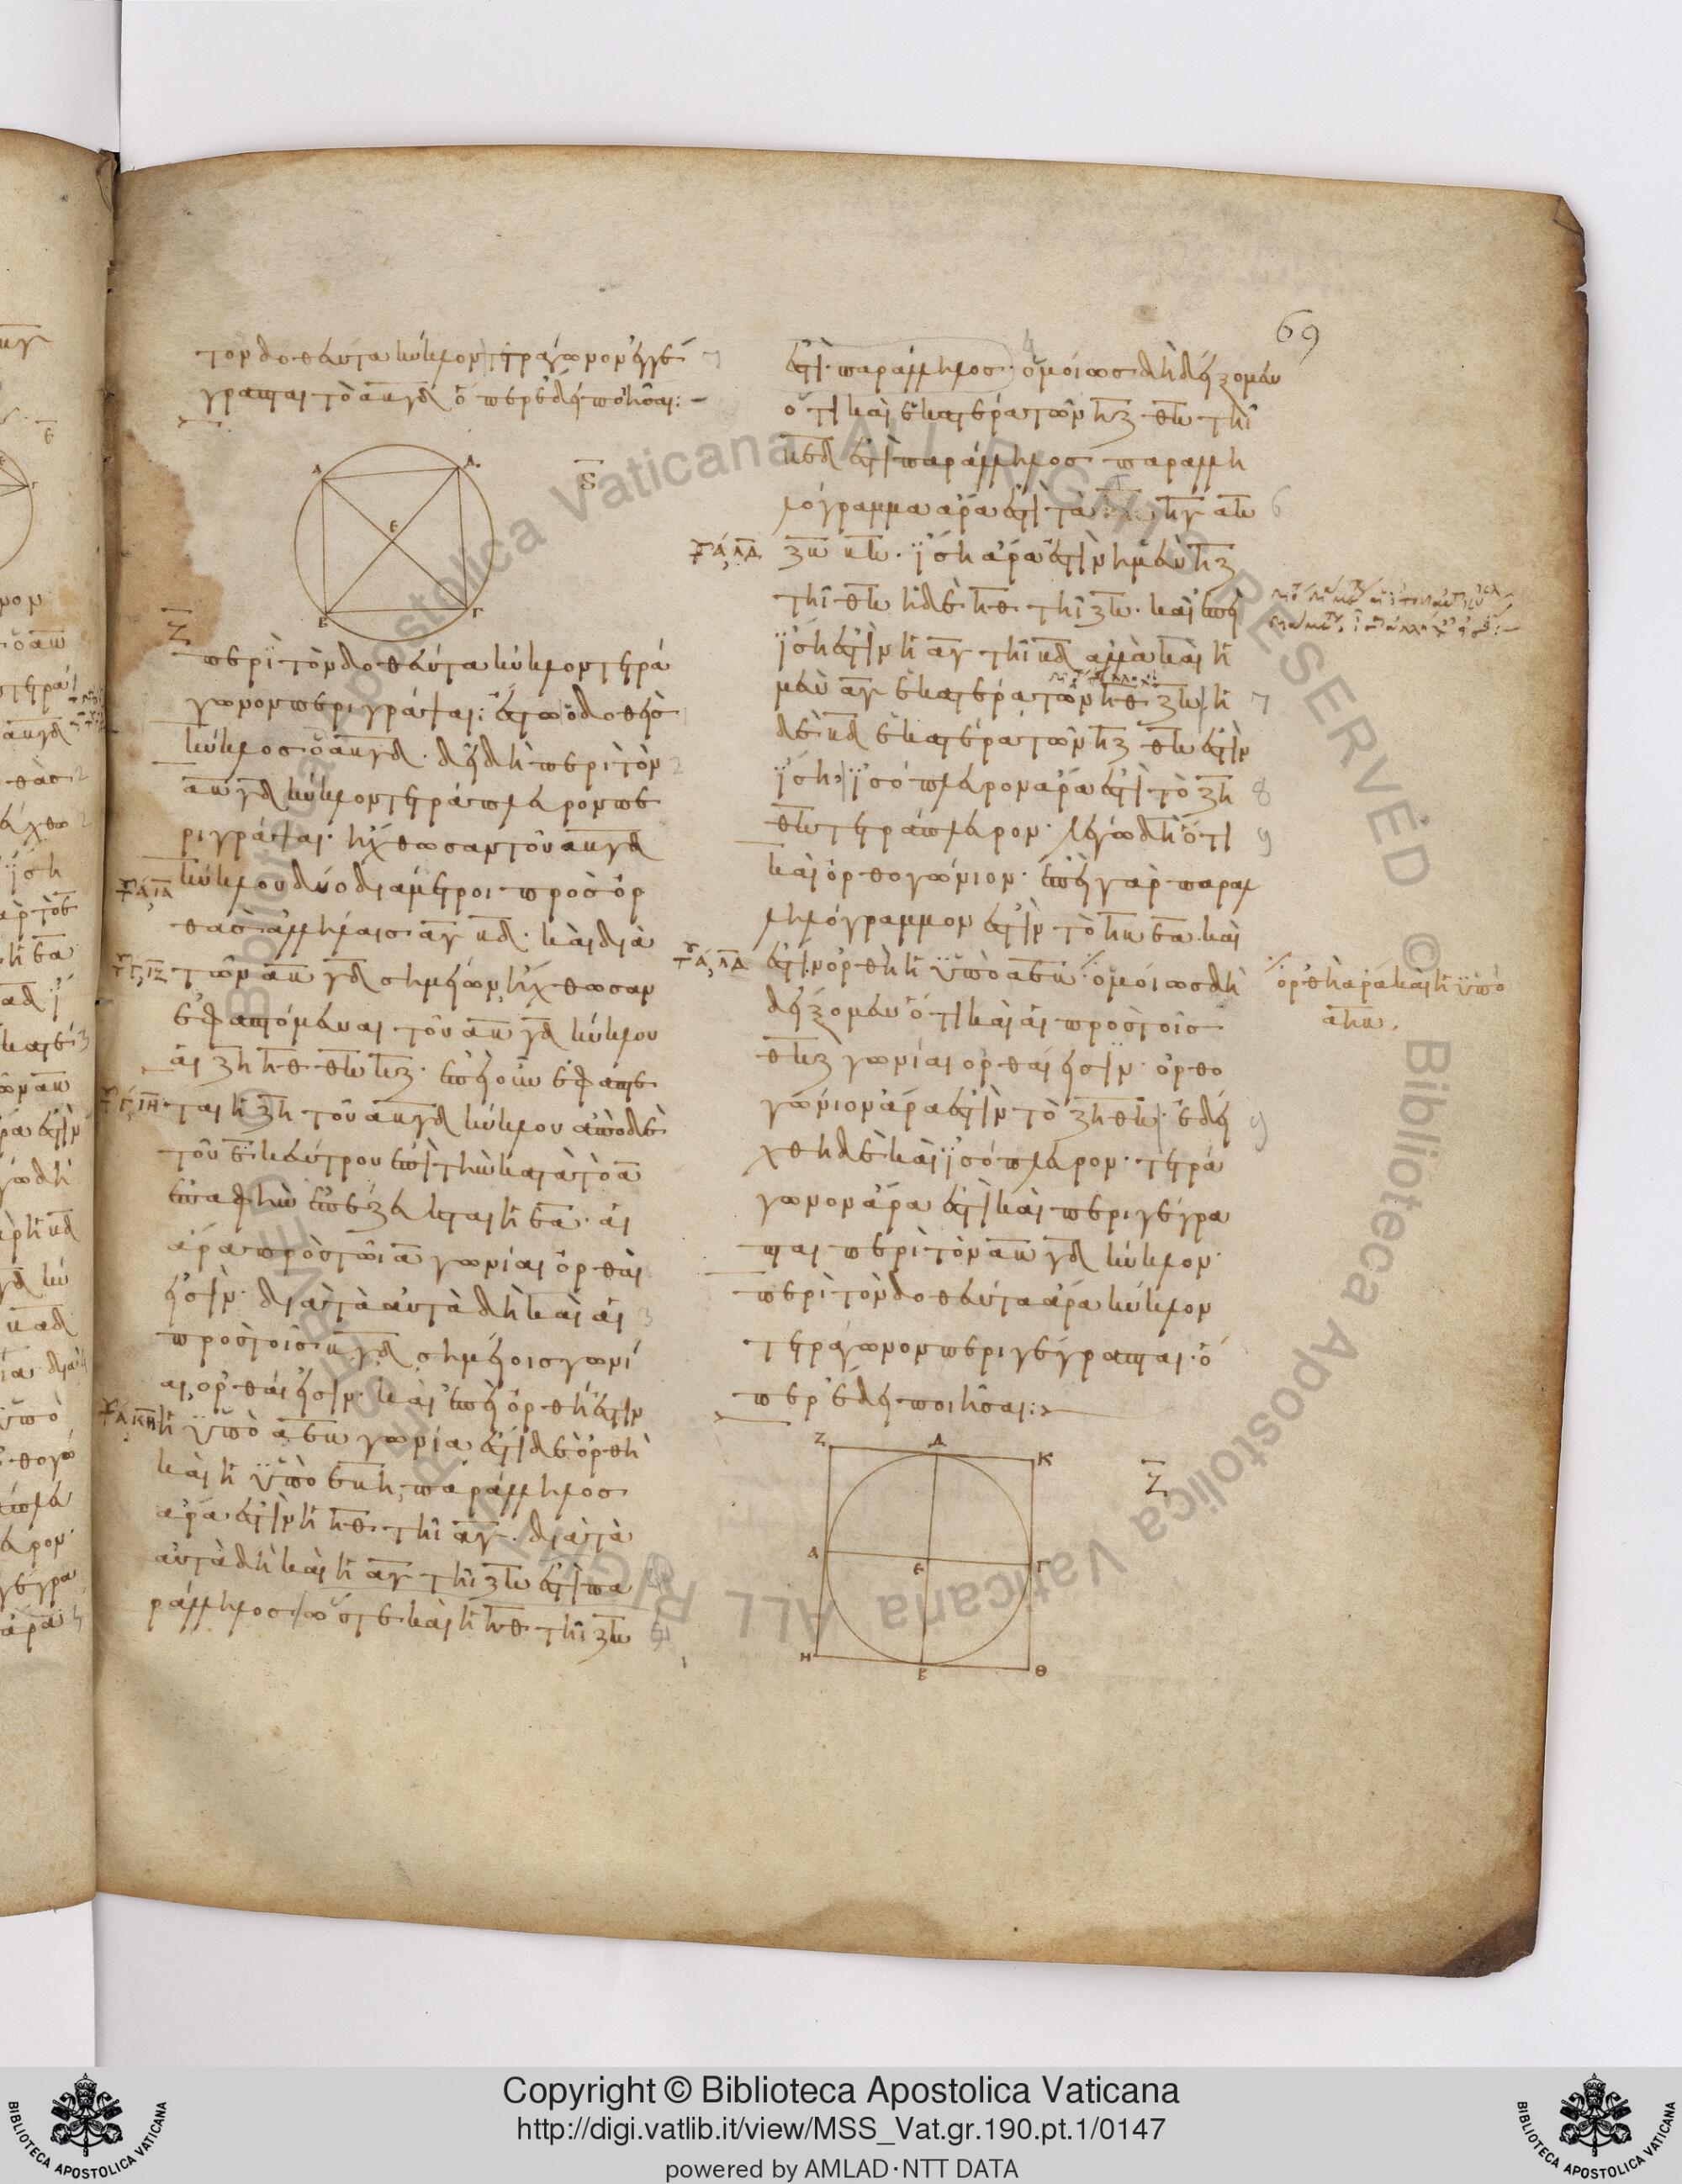 69
τον δοθέντα κύκλον τετράγωνον ἐγγέ
γραπται τὸ ΑΒΓΔ ὅπερ ἔδει ποιῆσαι:
Α Δ Ε Β Γ
Ϛ
Ζ
περὶ τὸν δοθέντα κύκλον τετρά
γωνον περιγράψαι: ἔστω ὁ δοθεὶς
κύκλος ὁ ΑΒΓΔ · δεῖ δὴ περὶ τὸν
ΑΒΓΔ κύκλον τετράπλευρον πε
ριγράψαι · ἤχθωσαν τοῦ ΑΒΓΔ
κύκλου δύο διάμετροι πρὸς ὀρ
θὰς ἀλλήλαις ΑΓ ΒΔ · καὶ διὰ
τῶν ΑΒ ΓΔ σημείων ἤχθωσαν
ἐφαπτόμεναι τοῦ ΑΒΓΔ κύκλου
αἱ ΖΗ ΗΘ ΘΚ ΚΖ · ἐπεὶ οὖν ἐφάπτε
ται ἡ ΖΗ τοῦ ΑΒΓΔ κύκλου ἀπὸ δὲ
τοῦ Ε κέντρου ἐπὶ τὴν κατὰ τὸ Α
ἐπαφὴν ἐπέζευκται ἡ ΕΑ · αἱ
ἄρα πρὸς τῶι Α γωνίαι ὀρθαὶ
εἰσίν · διὰ τὰ αὐτὰ δὴ καὶ αἱ
πρὸς τοῖς ΒΓΔ σημείοις γωνί
αι ὀρθαί εἰσιν · καὶ ἐπεὶ ὀρθή ἐστιν
ἡ ὑπὸ ΑΕΒ γωνία ἐστὶ δὲ ὀρθὴ
καὶ ἡ ὑπὸ ΕΒΗ, παράλληλος
ἄρα ἐστὶν ἡ ΗΘ τῆι ΑΓ · διὰ τὰ
αὐτὰ δὴ καὶ ἡ ΑΓ τῆι ΖΚ ἐστὶ πα
ράλληλος ὥστε καὶ ἡ ΗΘ τῆι ΖΚ
ἐστὶ παράλληλος · ὁμοίως δὴ δείξομεν
ὅτι καὶ ἑκατέρα τῶν ΗΖ ΘΚ τῆι
ΒΕΔ ἐστὶ παράλληλος παραλλη
λόγραμμα ἄρα ἐστὶ τὰ ΗΓ ΑΚ
ΖΒ ΒΚ · ἴση ἄρα ἐστὶν ἡ μὲν ΗΖ
τῆι ΘΚ ἡ δὲ ΗΘ τῆι ΖΚ · καὶ ἐπεὶ
ἴση ἐστὶν ἡ ΑΓ τῆι ΒΔ ἀλλὰ καὶ ἡ
μὲν ΑΓ ἑκατέρα τῶν ΗΘ ΖΚ ἡ
δὲ ΒΔ ἑκατέρα τῶν ΗΖ ΘΚ ἐστὶν
ἴση ἰσόπλευρον ἄρα ἐστὶ τὸ ΖΗ
ΘΚ τετράπλευρον · λέγω δὴ ὅτι
καὶ ὀρθογώνιον · ἐπεὶ γὰρ παραλ
ληλόγραμμον ἐστὶν τὸ ΗΒΕΑ καὶ
ἐστὶν ὀρθὴ ἡ ὑπὸ ΑΕΒ · ὁμοίως δὴ
δείξομεν ὅτι καὶ αἱ πρὸς τοῖς
ΘΚΖ γωνίαι ὀρθαί εἰσιν · ὀρθο
γώνιον ἄρα ἐστὶν τὸ ΖΗΘΚ · ἐδεί
χθη δὲ καὶ ἰσόπλευρον · τετρά
γωνον ἄρα ἐστὶ καὶ περιγέγρα
πται περὶ τὸν ΑΒΓΔ κύκλον ·
περὶ τὸν δοθέντα ἄρα κύκλον
τετράγωνον περιγέγραπται · ὅ
περ ἔδει ποιῆσαι:
ὀρθὴ ἄρα καὶ ἡ ὑπὸ
ΑΗΒ.
Ζ Δ Κ Α Ε Γ Η Β Θ
Ζ
Copyright © Biblioteca Apostolica Vaticana
http://digi.vatlib.it/view/MSS_Vat.gr.190.pt.1/0147
powered by AMLAD·NTT DATA
BIBLIOTECA APOSTOLICA VATICANA
BIBLIOTECA APOSTOLICA VATICANA